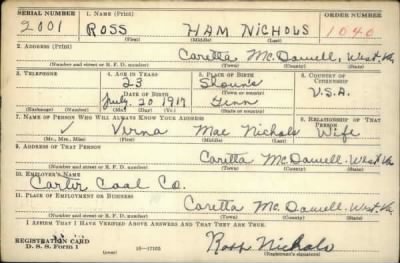 SERIAL NUMBER 1. NAME (Print) ORDER NUMBER
2001 ROSS HAM NICHOLS 1040
(First) (Middle) (Last)
2. ADDRESS (Print)
Caretta McDowell, West. Va.
(Number and street or R. F. D. number) (Town) (County) (State)
3. TELEPHONE 4. AGE IN YEARS 5. PLACE OF BIRTH 6. COUNTRY OF CITIZENSHIP
23 Shouns
DATE OF BIRTH (Town or county)
July 20 1917 Tenn U.S.A.
(Exchange) (Number) (Mo.) (Day) (Yr.) (State or country)
7. NAME OF PERSON WHO WILL ALWAYS KNOW YOUR ADDRESS 8. RELATIONSHIP OF THAT PERSON
✓ Virna Mae Nichols Wife
(Mr., Mrs., Miss) (First) (Middle) (Last)
9. ADDRESS OF THAT PERSON
Caretta McDowell. West. Va.
(Number and street or R. F. D. number) (Town) (County) (State)
10. EMPLOYER'S NAME
Carter Coal Co.
11. PLACE OF EMPLOYMENT OR BUSINESS
Caretta McDowell. West. Va.
(Number and street or R. F. D. number) (Town) (County) (State)
I AFFIRM THAT I HAVE VERIFIED ABOVE ANSWERS AND THAT THEY ARE TRUE.
REGISTRATION CARD
D. S. S. Form 1 16—17105 Ross Nichols
(Registrant's signature)